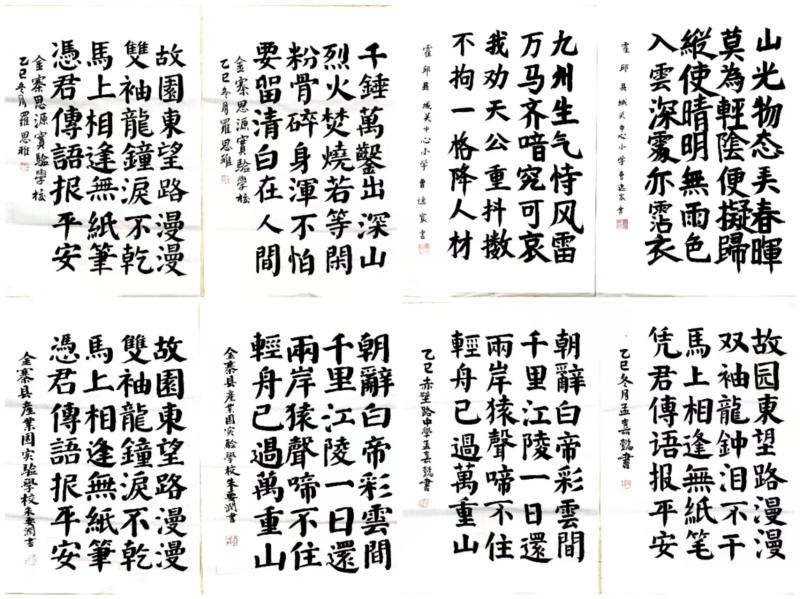 故園東望路漫漫
雙袖龍鐘淚不乾
馬上相逢無紙筆
憑君傳語报平安
金寨思源實驗學校
乙巳冬月羅思雅
千錘萬鑿出深山
烈火焚燒若等閑
粉骨碎身渾不怕
要留清白在人間
金寨思源實驗學校
乙巳冬月羅思雅
九州生气恃风雷
万马齐喑究可哀
我劝天公重抖擞
不拘一格降人材
霍邱县城关中心小学曹逸宸書
山光物态弄春暉
莫為輕陰便擬歸
縱使晴明無雨色
入雲深處亦霑衣
霍邱县城关中心小学曹逸宸書
故園東望路漫漫
雙袖龍鐘淚不乾
馬上相逢無紙筆
憑君傳語报平安
金寨县産業园实驗學校朱要潤書
朝辭白帝彩雲間
千里江陵一日還
兩岸猿聲啼不住
輕舟已過萬重山
金寨县産業园实驗學校朱要潤書
朝辭白帝彩雲間
千里江陵一日還
兩岸猿聲啼不住
輕舟已過萬重山
乙巳赤壁路中學孟嘉懿書
故园東望路漫漫
双袖龍鈡泪不干
馬上相逢無紙笔
凭君傳语报平安
乙巳冬月孟嘉懿書